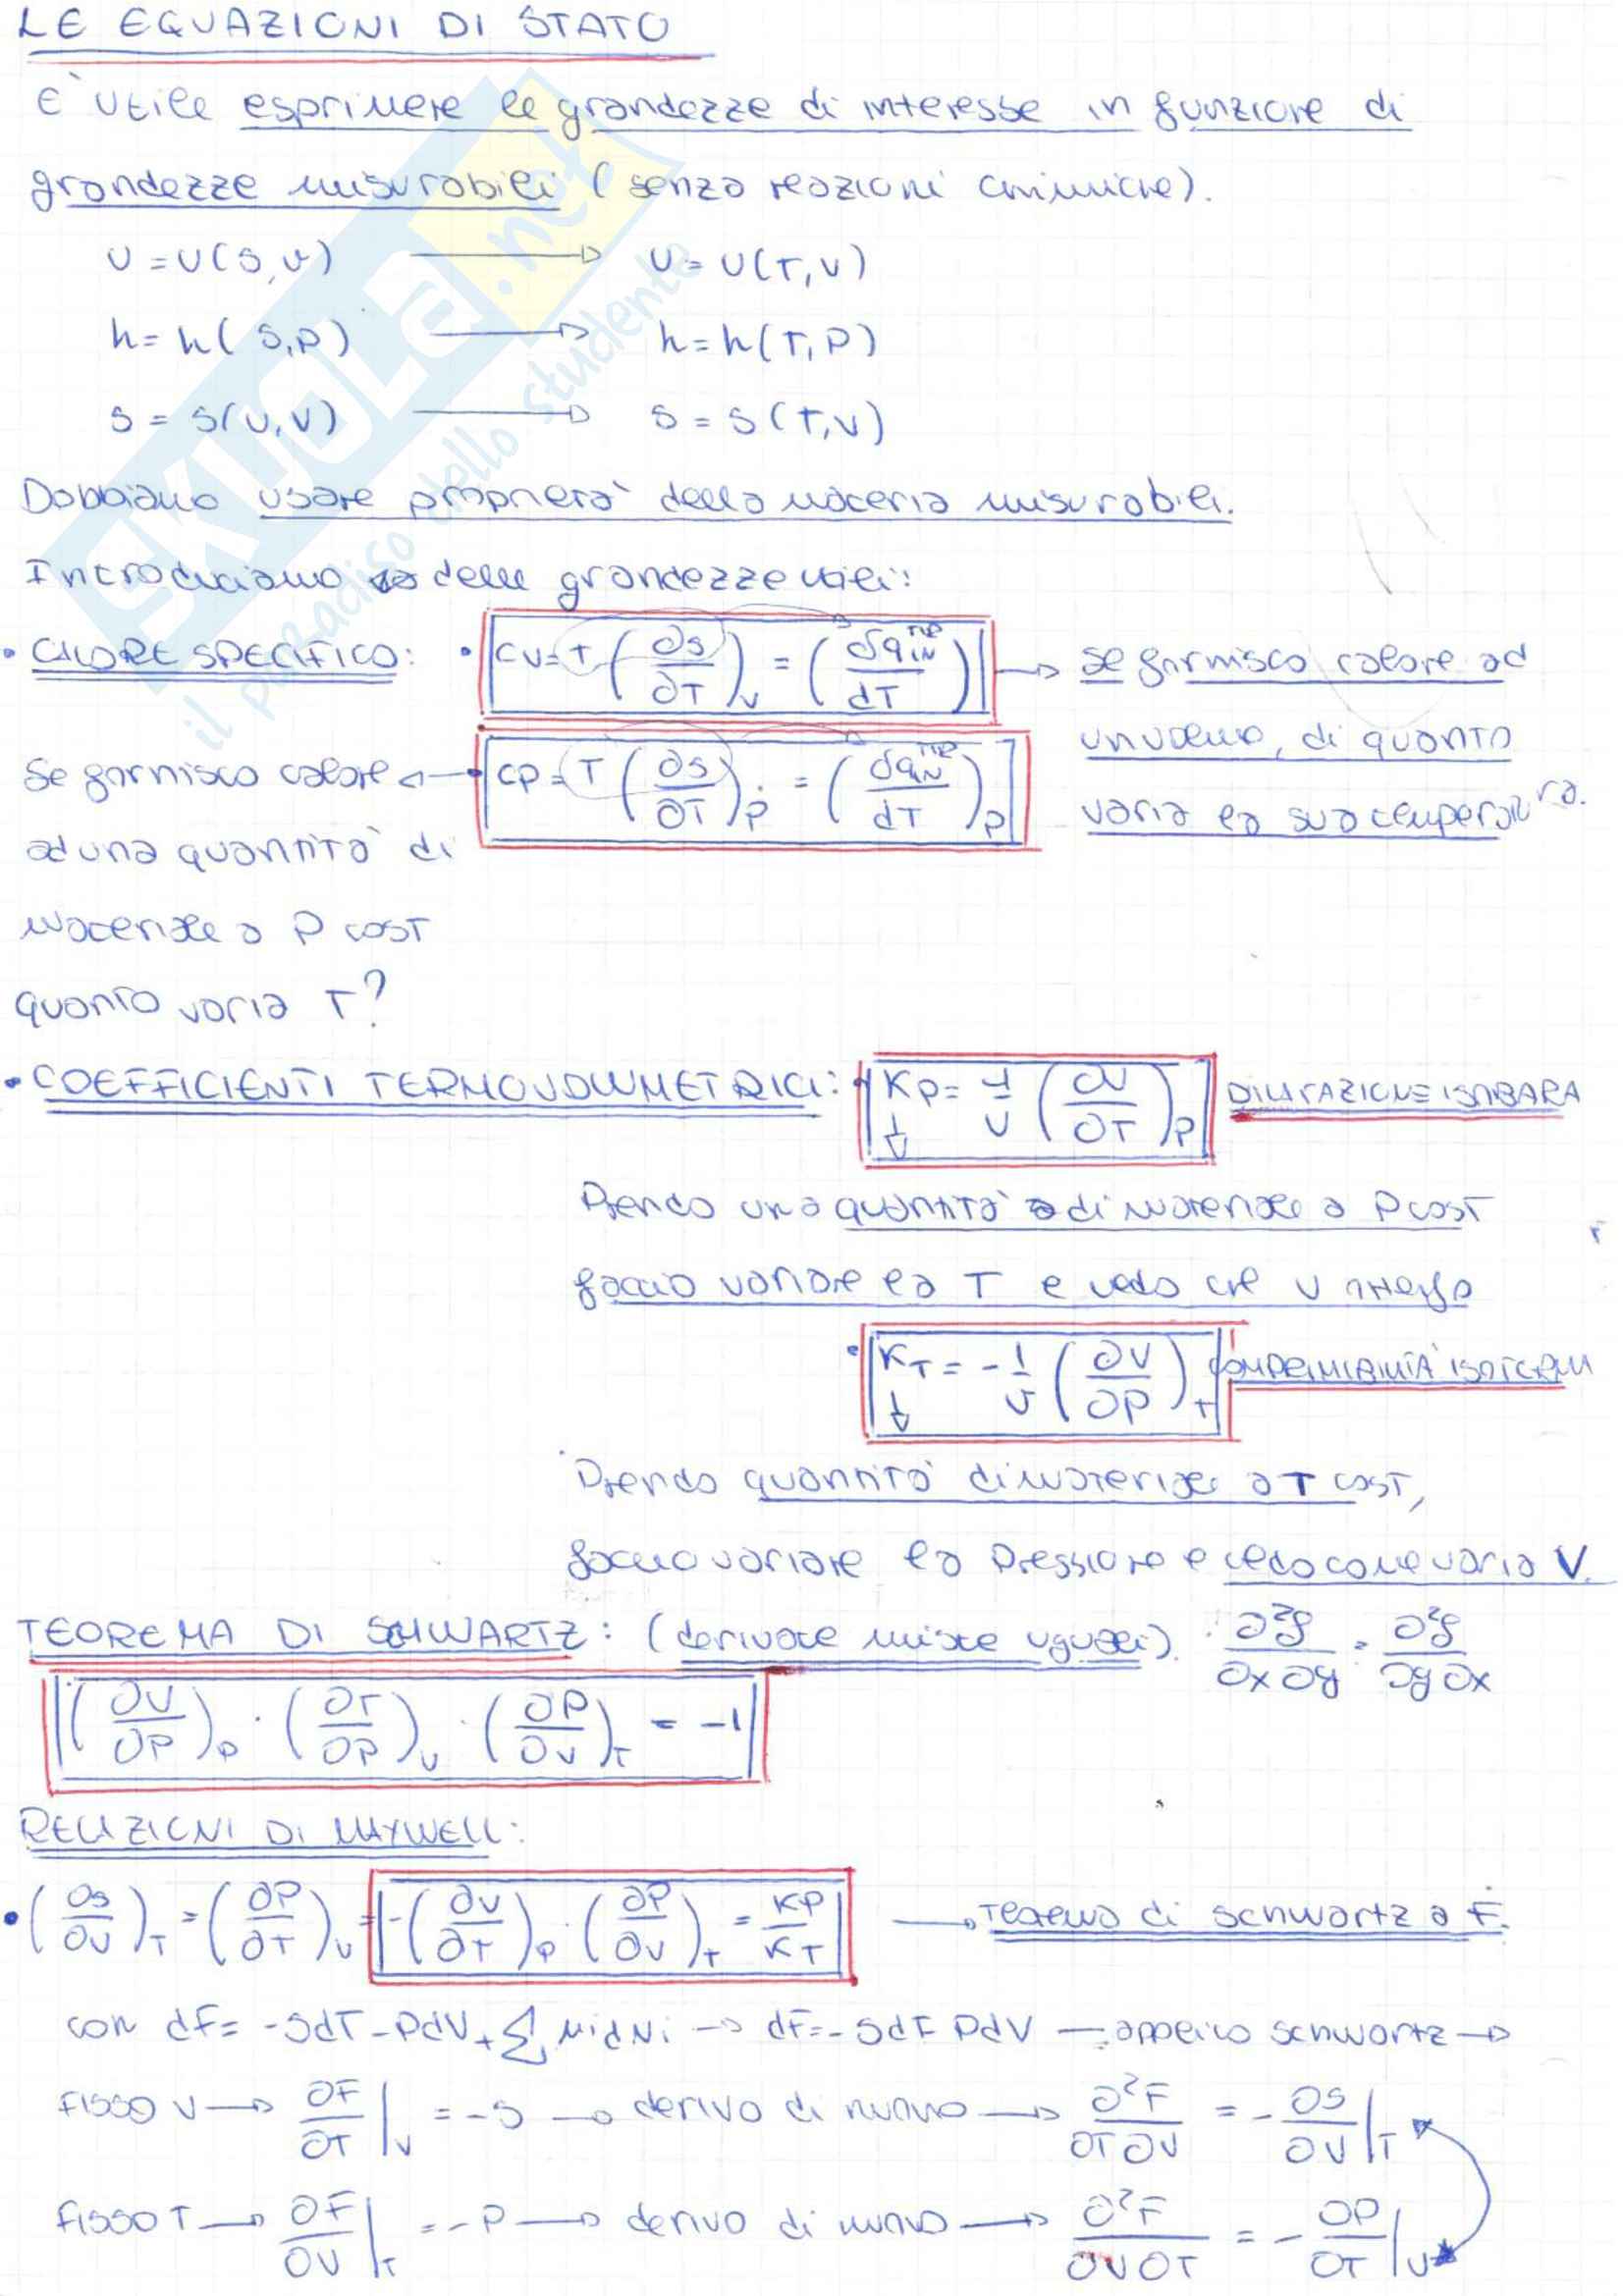 LE EQUAZIONI DI STATO
E' utile esprimere le grandezze di interesse in funzione di
grandezze misurabili (senza reazioni chimiche).
U = U(S,V) → U = U(T,V)
h = h(S,P) → h = h(T,P)
S = S(U,V) → S = S(T,V)
Dobbiamo usare proprietà della materia misurabili.
Introduciamo delle grandezze utili:
• CALORE SPECIFICO: • CV = T (∂S/∂T)V = (δq IN/dT) → se fornisco calore ad
un volume, di quanto
varia la sua temperatura.
Se fornisco calore ← • CP = T (∂S/∂T)P = (δq IN/dT)P
ad una quantità di
materiale a P cost
quanto varia T?
• COEFFICIENTI TERMOVOLUMETRICI: • KP = 1/V (∂V/∂T)P DILATAZIONE ISOBARA
Prendo una quantità di materiale a P cost
faccio variare la T e vedo che V
• KT = -1/V (∂V/∂P)T COMPRIMIBILITÀ ISOTERMA
Prendo quantità di materiale a T cost,
faccio variare la pressione e vedo come varia V.
TEOREMA DI SCHWARTZ: (derivate miste uguali). ∂²f/∂x∂y = ∂²f/∂y∂x
(∂V/∂P)P · (∂T/∂P)V · (∂P/∂V)T = -1
RELAZIONI DI MAXWELL:
• (∂S/∂V)T = (∂P/∂T)V = -(∂V/∂T)P · (∂P/∂V)T = KP/KT → Teorema di Schwartz a F.
con dF = -SdT - PdV + Σ μidNi → dF = -SdT PdV → applico Schwartz →
FISSO V → ∂F/∂T|V = -S → derivo di nuovo → ∂²F/∂T∂V = -∂S/∂V|T
FISSO T → ∂F/∂V|T = -P → derivo di nuovo → ∂²F/∂V∂T = -∂P/∂T|V
SKUOLA.net
il paradiso dello studente